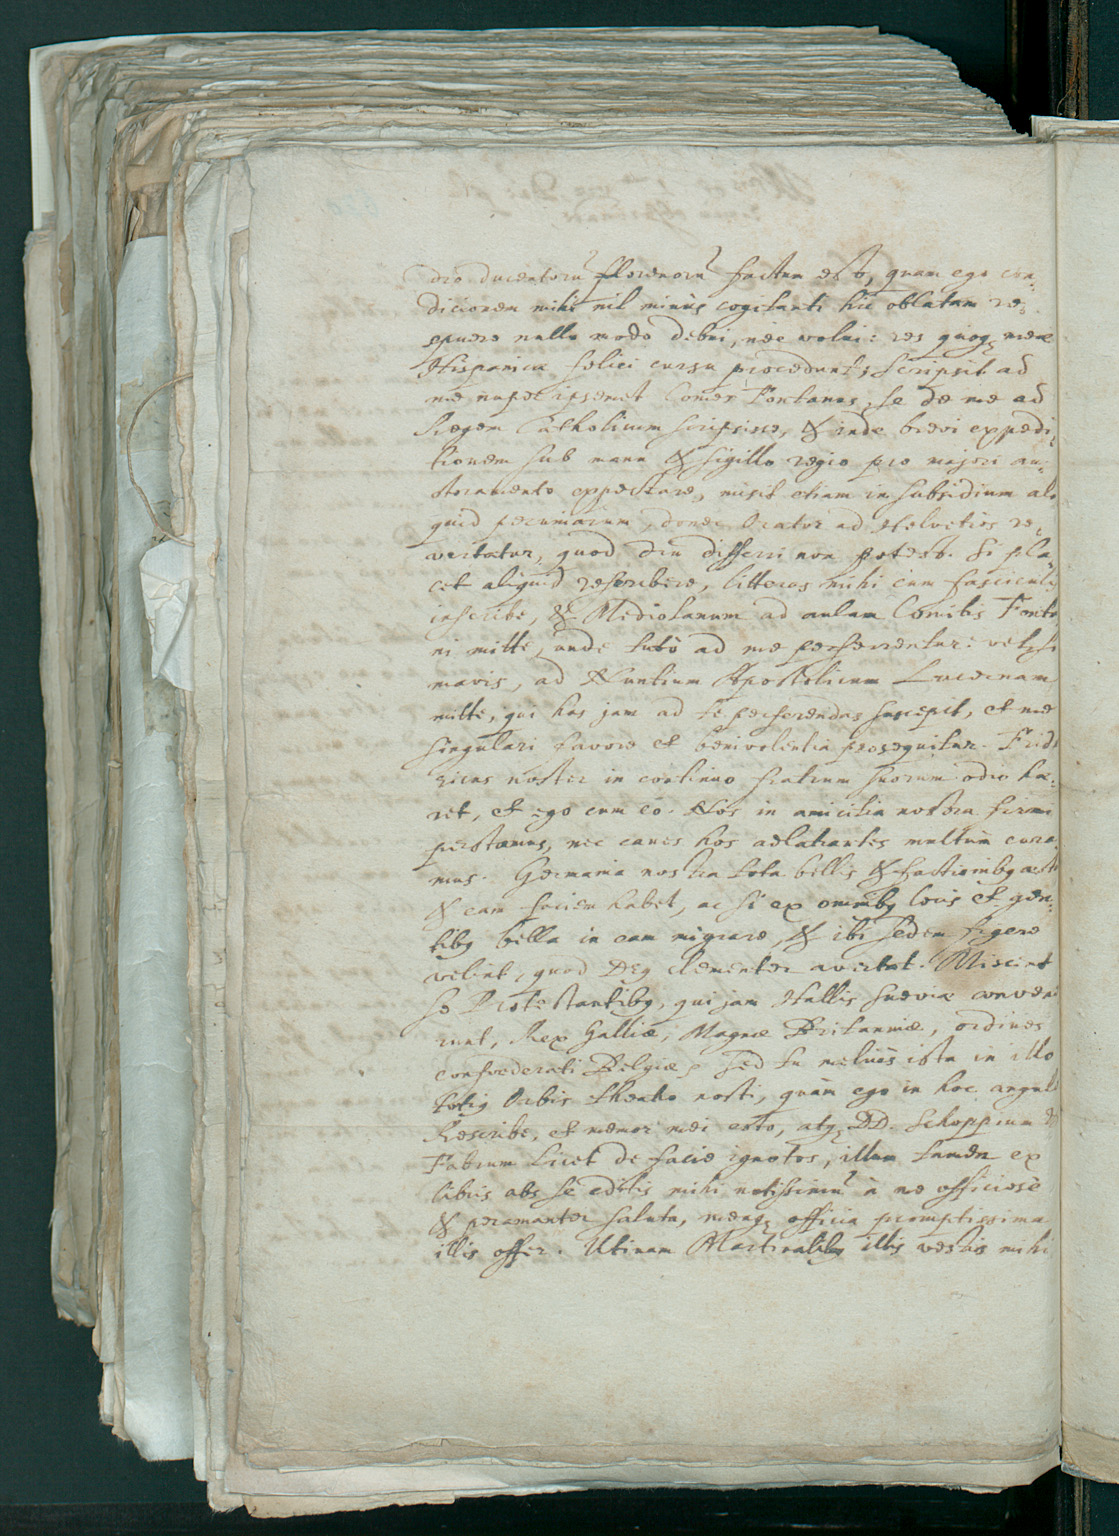 dio ducentorũ florenorũ factum est, quam ego con-
ditionem mihi nil minùs cogitanti hic oblatam re-
spuere nullo modo debui, nec volui: res quoq; meæ
Hispanicæ felici cursu procedunt, scripsit ad
me nuper ipsemet Comes Fontanus, se de me ad
Regem Catholicum scripsisse, & inde brevi expedi-
tionem sub manu & sigillo regio pro majori au-
ctoramento expectare, misit etiam in subsidium ali
quid pecuniarum, donec Orator ad Helvetios re-
vertatur, quod diu differri non potest. Si pla-
cet aliquid rescribere, litteras mihi cum fasciculo
inscribe, & Mediolanum ad aulam Comitis Fonta
ni mitte, unde tutò ad me perferentur: vel, si
mavis, ad Nuntium Apostolicum Lucernam
mitte, qui has jam ad te perferendas suscepit, et me
singulari favore et benivolentia prosequitur. Frid
ricus noster in continuo fratrum suorum odio hæ-
ret, et ego cum eo. Nos in amicitia nostra firmi
perstamus, nec canes hos adlatrantes multùm cura-
mus. Germania nostra tota bellis & factionibq æst
& eam faciem habet, ac si ex omnibq locis et gen-
tibq bella in eam migrare, & ibi sedem figere
velint, quod Deq clementer avertat. Miscent
se Protestantibq, qui jam Hallis Sueviæ conven
runt, Rex Galliæ, Magnæ Britanniæ, ordines
confoederati Belgiæ, sed tu meliùs ista in illo
totiq Orbis theatro nosti, quàm ego in hoc angulo
Rescribe, et memor mei esto, atq; DD. Schoppium &
Fabrum licet de facie ignotos, illum tamen ex
libris abs se editis mihi notissimũ à me officiosè
& peramanter saluta, meaq; officia promptissima
illis offer. Utinam Martinalibq illis vestris mihi